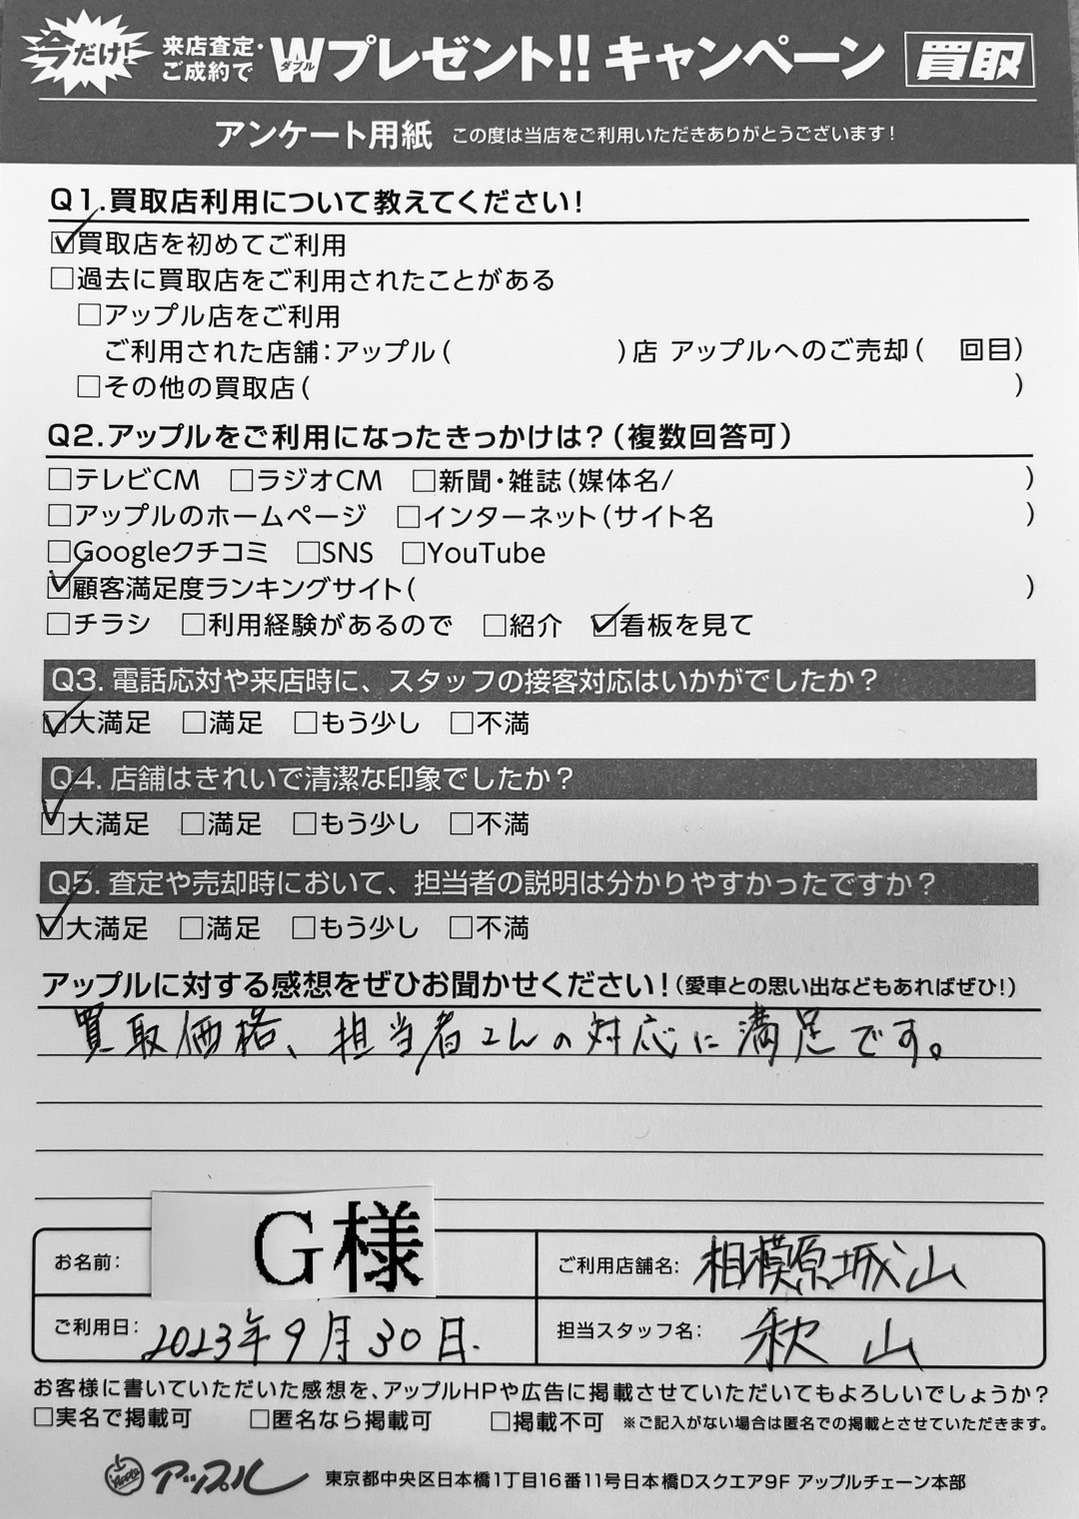 今だけ! 来店査定・ご成約で W ダブル プレゼント!! キャンペーン 買取
アンケート用紙 この度は当店をご利用いただきありがとうございます!
Q1.買取店利用について教えてください!
☑買取店を初めてご利用
□過去に買取店をご利用されたことがある
□アップル店をご利用
ご利用された店舗:アップル( )店 アップルへのご売却( 回目)
□その他の買取店( )
Q2.アップルをご利用になったきっかけは?(複数回答可)
□テレビCM □ラジオCM □新聞・雑誌(媒体名/ )
□アップルのホームページ □インターネット(サイト名 )
□Googleクチコミ □SNS □YouTube
☑顧客満足度ランキングサイト( )
□チラシ □利用経験があるので □紹介 ☑看板を見て
Q3. 電話応対や来店時に、スタッフの接客対応はいかがでしたか?
☑大満足 □満足 □もう少し □不満
Q4. 店舗はきれいで清潔な印象でしたか?
☑大満足 □満足 □もう少し □不満
Q5. 査定や売却時において、担当者の説明は分かりやすかったですか?
☑大満足 □満足 □もう少し □不満
アップルに対する感想をぜひお聞かせください!(愛車との思い出などもあればぜひ!)
買取価格、担当者さんの対応に満足です。
お名前: G様 ご利用店舗名: 相模原城山
ご利用日: 2023年9月30日. 担当スタッフ名: 秋山
お客様に書いていただいた感想を、アップルHPや広告に掲載させていただいてもよろしいでしょうか?
□実名で掲載可 □匿名なら掲載可 □掲載不可 ※ご記入がない場合は匿名での掲載とさせていただきます。
Apple アップル 東京都中央区日本橋1丁目16番11号日本橋Dスクエア9F アップルチェーン本部